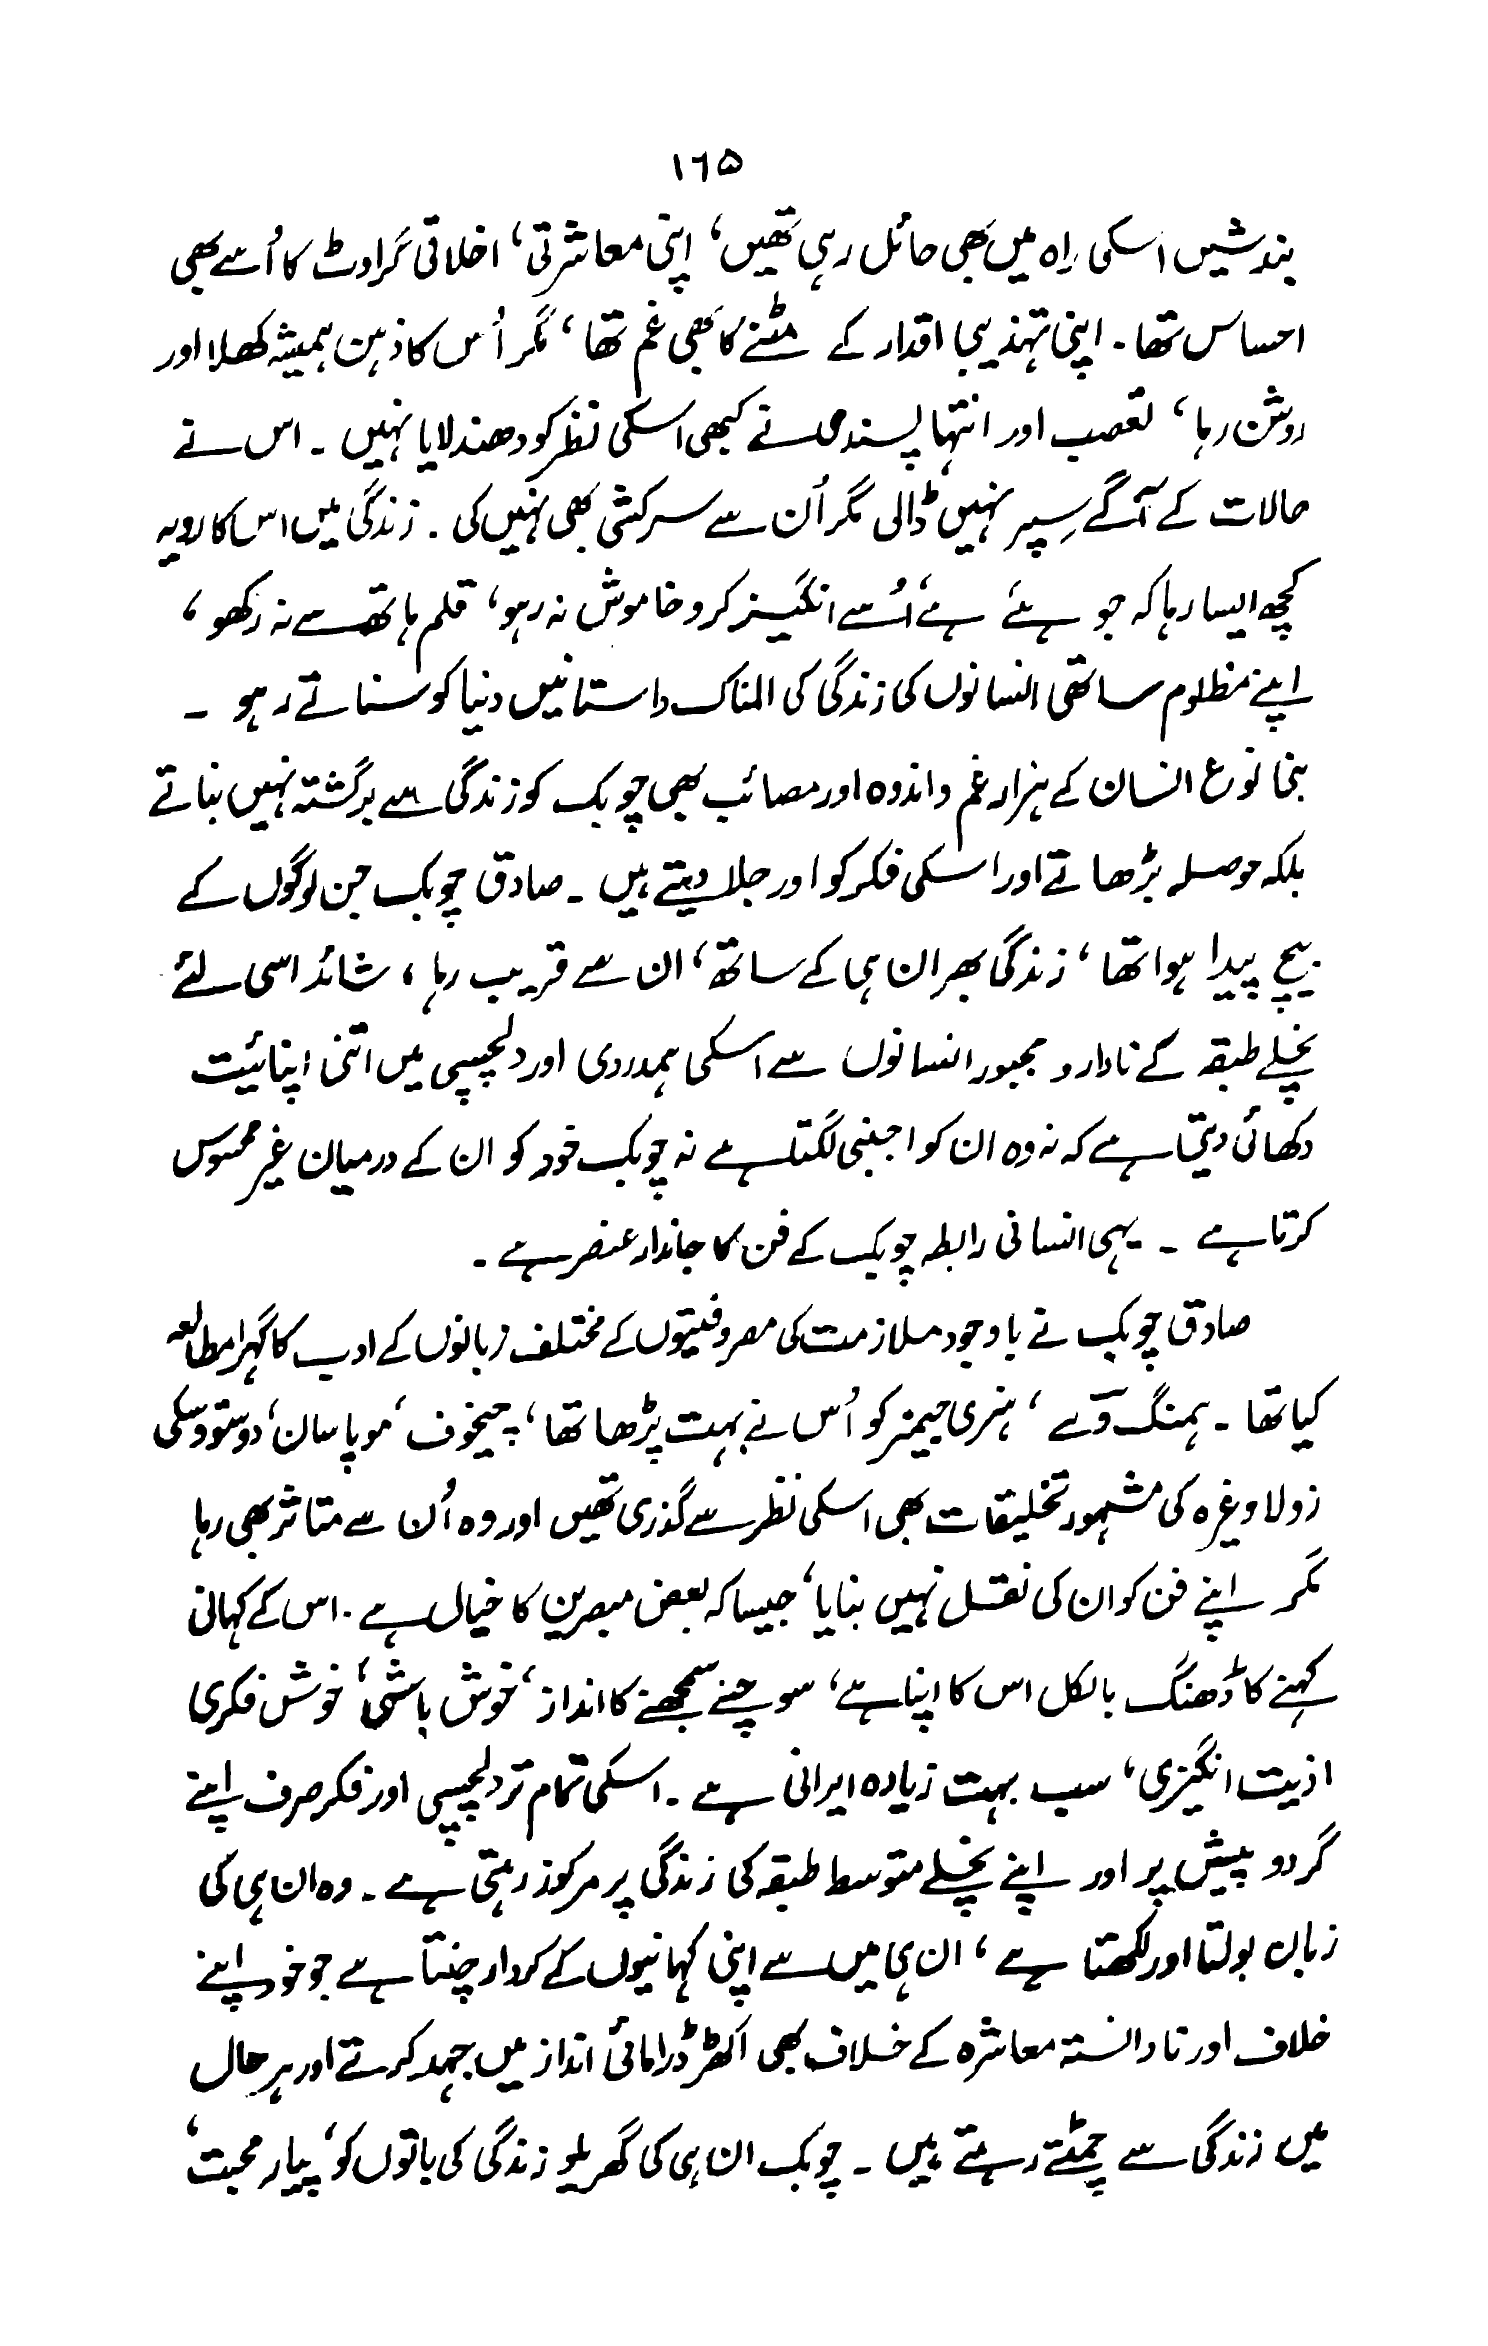 ۱۶۵
بندشیں اسکی راہ میں بھی حائل رہی تھیں، اپنی معاشرتی، اخلاقی گراوٹ کا اُسے بھی
احساس تھا۔ اپنی تہذیبی اقدار کے مٹنے کا بھی غم تھا، مگر اُس کا ذہن ہمیشہ کھلا اور
روشن رہا، تعصب اور انتہا پسندی نے کبھی اسکی نظر کو دھندلایا نہیں۔ اس نے
حالات کے آگے سِپر نہیں ڈالی مگر اُن سے سرکشی بھی نہیں کی۔ زندگی میں اس کا رویہ
کچھ ایسا رہا کہ جو ہئے ہے، اُسے انگیز کرو خاموش نہ رہو، قلم ہاتھ سے نہ رکھو،
اپنے مظلوم ساتھی انسانوں کی زندگی کی المناک داستانیں دنیا کو سناتے رہو ۔
بنی نوع انسان کے ہزار غم و اندوہ اور مصائب بھی چوبک کو زندگی سے برگشتہ نہیں بناتے
بلکہ حوصلہ بڑھاتے اور اسکی فکر کو اور جلا دیتے ہیں ۔ صادق چوبک جن لوگوں کے
بیچ پیدا ہوا تھا، زندگی بھر ان ہی کے ساتھ، ان سے قریب رہا، شائد اسی لئے
نچلے طبقہ کے نادار و مجبور انسانوں سے اسکی ہمدردی اور دلچسپی میں اتنی اپنائیت
دکھائی دیتی ہے کہ نہ وہ ان کو اجنبی لگتا ہے نہ چوبک خود کو ان کے درمیان غیر محسوس
کرتا ہے ۔ یہی انسانی رابطہ چوبک کے فن کا جاندار عنصر ہے ۔
صادق چوبک نے باوجود ملازمت کی مصروفیتوں کے مختلف زبانوں کے ادب کا گہرا مطالعہ
کیا تھا ۔ ہمنگ وَے، ہنری جیمز کو اُس نے بہت پڑھا تھا، چیخوف، موپاسان، دوستووسکی
زولا وغیرہ کی مشہور تخلیقات بھی اسکی نظر سے گذری تھیں اور وہ اُن سے متاثر بھی رہا
مگر اپنے فن کو ان کی نقل نہیں بنایا، جیسا کہ بعض مبصرین کا خیال ہے ۔ اس کے کہانی
کہنے کا ڈھنگ بالکل اس کا اپنا ہے، سوچنے سمجھنے کا انداز، خوش باشی، خوش فکری
اذیت انگیزی، سب بہت زیادہ ایرانی ہے ۔ اسکی تمام تر دلچسپی اور فکر صرف اپنے
گردو پیش پر اور اپنے نچلے متوسط طبقہ کی زندگی پر مرکوز رہتی ہے ۔ وہ ان ہی کی
زبان بولتا اور لکھتا ہے، ان ہی میں سے اپنی کہانیوں کے کردار چنتا ہے جو خود اپنے
خلاف اور نادانستہ معاشرہ کے خلاف بھی اکھڑ ڈرامائی انداز میں جہد کرتے اور ہر حال
میں زندگی سے چمٹتے رہتے ہیں ۔ چوبک ان ہی کی گھریلو زندگی کی باتوں کو، پیار محبت،